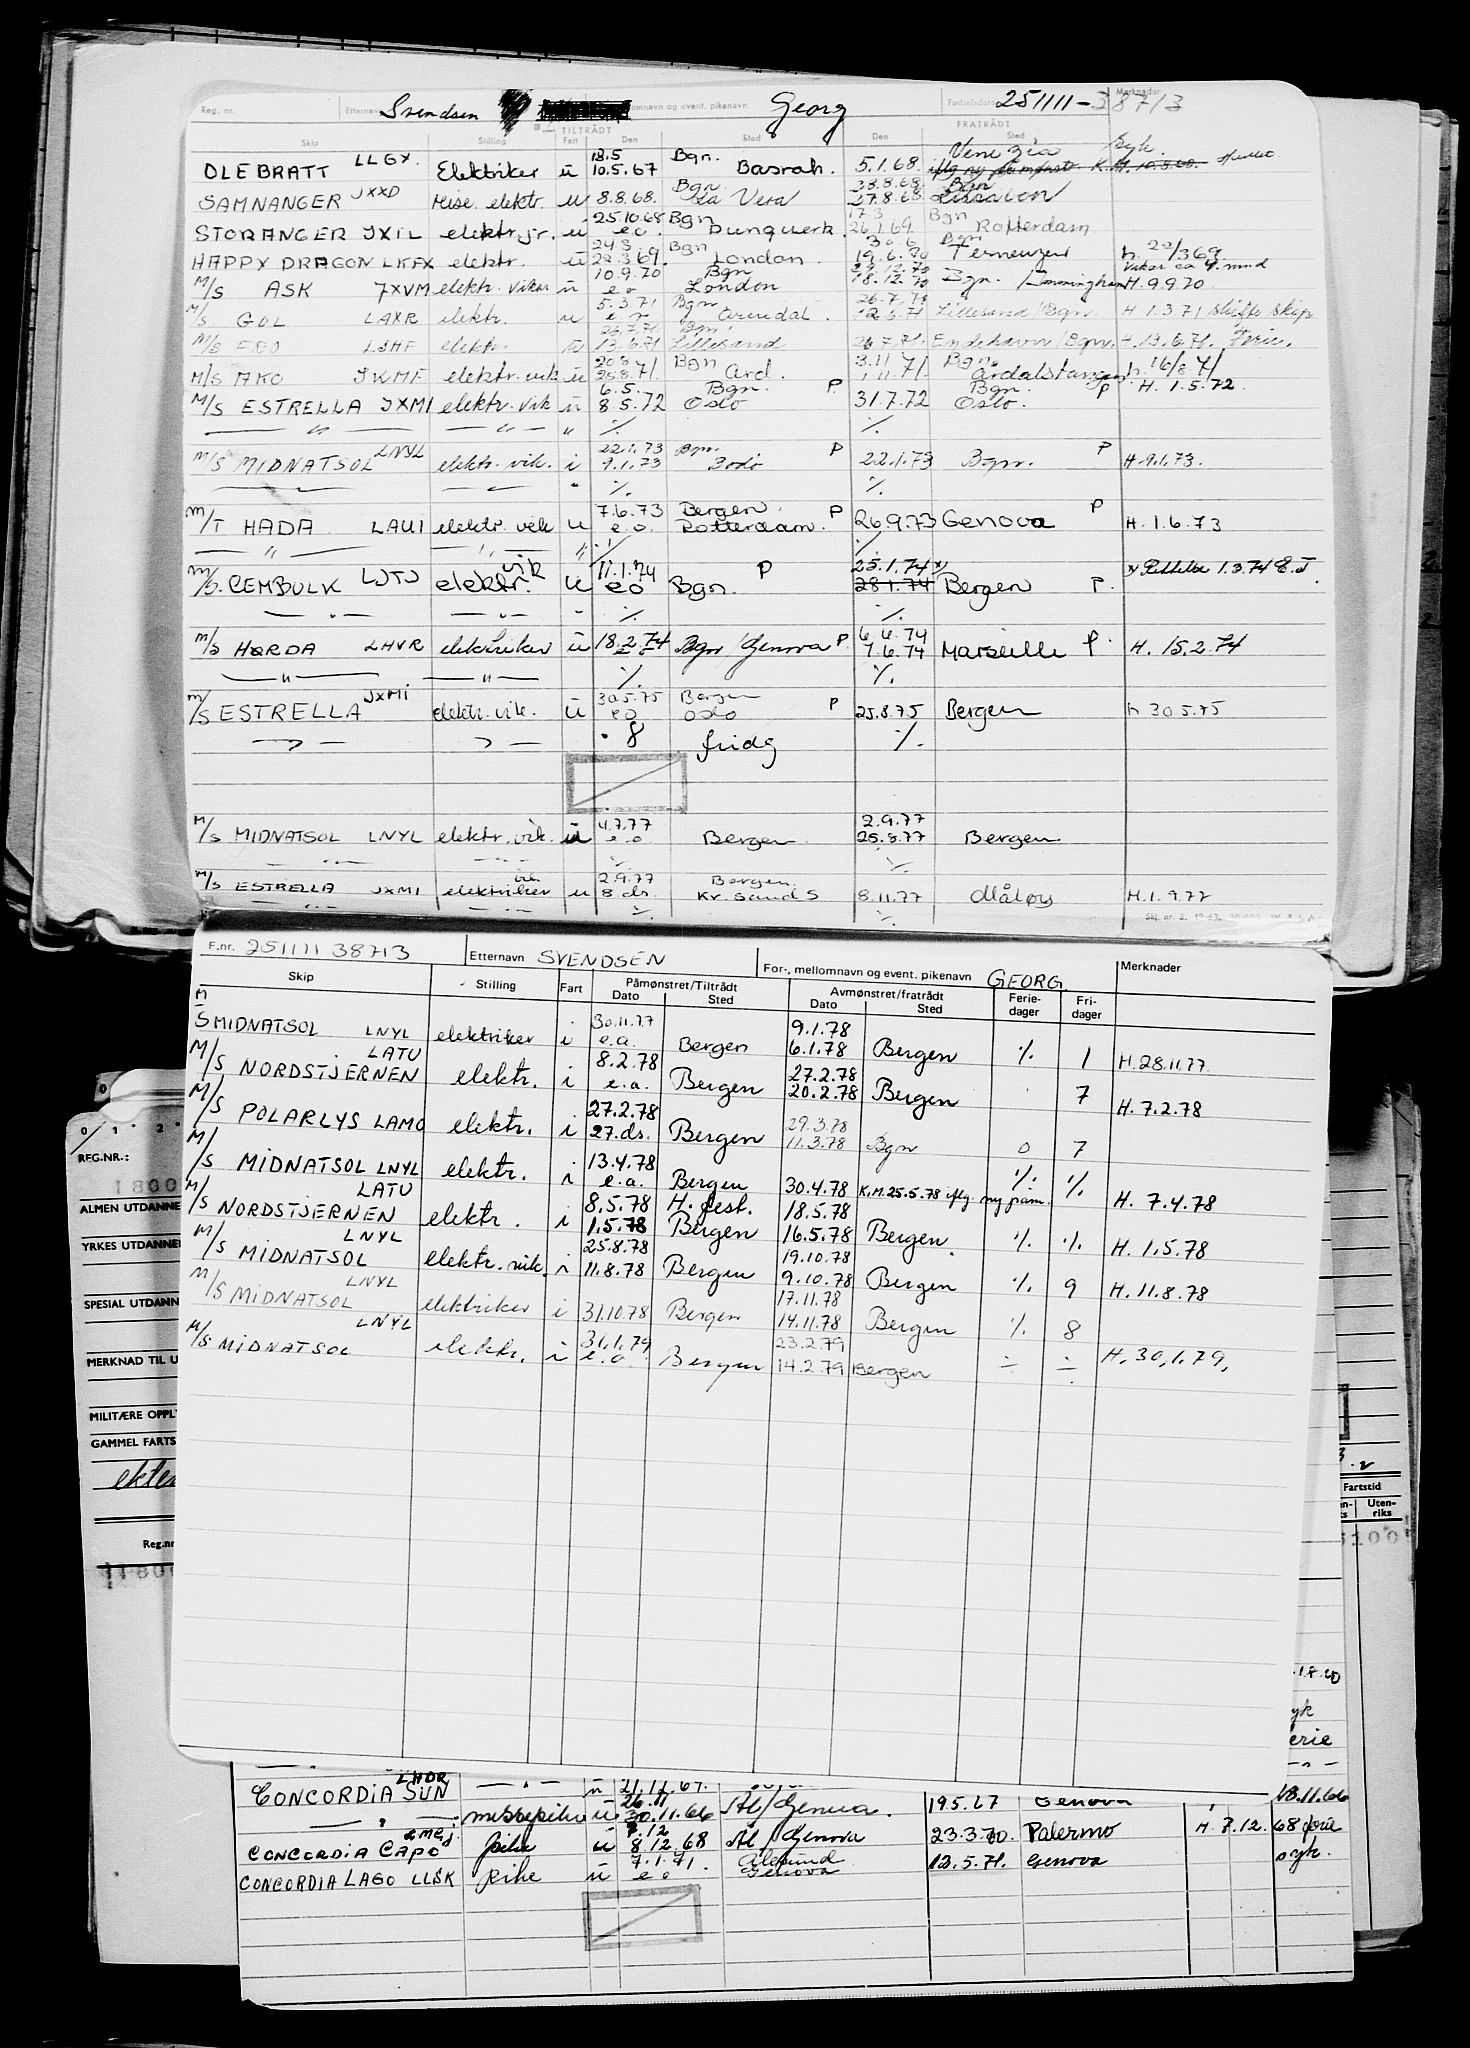 Reg. nr. Etternavn Svendsen mellomnavn og event. pikenavn Georg Fødselsdato 251111-38713 Merknader
TILTRÅDT FRATRÅDT
Skip Stilling Fart Den Sted Den Sted
18.5 Bgn. Venezia Syk
OLE BRATT LLGY Elektriker u 10.5.67 Basrah. 5.1.68.
Bgn 28.8.68 Bgn
SAMNANGER JXXD reise. elektr. u 8.8.68. La Vera 27.8.68 Lissabon
25.10.68 Bgn 17.3 Bgn
STORANGER JXIL elektr. jr. u e.o. Dunquerk. 26.1.69. Rotterdam
24.3 Bgn 30.6 Bgn
HAPPY DRAGON LKFX elektr. u 22.3.69. London. 19.6.70 Terneuzen h. 22/3 69.
10.9.70 Bgn 29.12.70 Vikar ca 4. mnd
M/S ASK JXVM elektr. vikar u e.o London 18.12.70 Bgn. / Immingham H. 9.9.70.
5.3.71 Bgn 26.7.71
M/S GOL LAXR elektr. u e.o Arendal. 12.6.71 Lillesand / Bgn. H 1.3.71 skifte skip
26.7.71 Bgn.
M/S elektr. u 13.6.71 Lillesand 26.7.71. Endehavn / Bgn. H. 13.6.71. Ferie.
20.8 Bgn 3.11 71 Bgn.
M/S AKO JKMF elektr. vik u 25.8.71. Ard. 1.11.71. Årdalstangen h. 16/8 71
6.5. Bgn. P Bgn. P
M/S ESTRELLA JXMI elektr. vik u 8 5.72 Oslo 31.7.72 Oslo. H. 1.5.72.
— " — — " — " ./. ./.
22.1.73 Bgn. P P
M/S MIDNATSOL LNYL elektr. vik. i 9.1.73 Bodø 22.1.73 Bgn. H. 9.1.73.
— — " ./. ./.
7.6.73 Bergen. P P
M/T HADA LAUI elektr. vik u e.o. Rotterdam. 26.9.73 Genova H. 1.6.73
— " — — " — " ./. ./.
vik 11.1.74 P 25.1.74 x)
M/S. CEMBULK LJTJ elektr. u e o Bgn. 28.1.74 Bergen P. x) Rettelse 1.3.74 E.J.
— " — — " — " ./. ./.
6.6.74
M/S HORDA LHVR elektriker u 18.2.74 Bgn / Genova P. 7.6.74 Marseille P. H. 15.2.74
— " — — " — ./. ./.
30.5.75 Bergen
M/S ESTRELLA JXMI elektr. vik. u e o Oslo P 25.8.75 Bergen h 30.5.75
— " — — " — . 8 fridg ./.
4.7.77 2.9.77
M/S MIDNATSOL LNYL elektr. vik. u e.o. Bergen 25.8.77 Bergen
— " — — " — ./. ./.
vik. 2.9.77 Bergen.
M/S ESTRELLA JXMI elektriker u 8. ds. Kr. sand S 8.11.77 Måløy H. 1.9.77
— " — — " — ./. ./.
F.nr. 251111 38713 Etternavn SVENDSEN For-, mellomnavn og event. pikenavn GEORG. Merknader
Skip Stilling Fart Påmønstret/Tiltrådt Avmønstret/fratrådt Ferie- Fri-
Dato Sted Dato Sted dager dager
30.11.77 9.1.78
M/S MIDNATSOL LNYL elektriker i e.a. Bergen 6.1.78 Bergen ./. 1 H. 28.11.77
8.2.78 27.2.78
M/S NORDSTJERNEN LATU elektr. i e.a. Bergen 20.2.78 Bergen 7 H. 7.2.78
27.2.78 29.3.78
M/S POLARLYS LAMO elektr. i 27. ds. Bergen 11.3.78 Bgn 0 7
13.4.78
M/S MIDNATSOL LNYL elektr. i e.a. Bergen 30.4.78 K.M. 25.5.78 iflg. ny påm. ./. ./. H. 7.4.78
8.5.78 H. fest. 18.5.78
M/S NORDSTJERNEN LATU elektr. i 1.5.78 Bergen 16.5.78 Bergen ./. ./. H. 1.5.78
25.8.78 19.10.78
M/S MIDNATSOL LNYL elektr. vik. i 11.8.78 Bergen 9.10.78 Bergen ./. 9 H. 11.8.78
17.11.78
M/S MIDNATSOL LNYL elektriker i 31.10.78 Bergen 14.11.78 Bergen ./. 8
31.1.79 23.2.79
M/S MIDNATSOL LNYL elektr. i e.a. Bergen 14.2.79 Bergen ÷ ÷ H. 30.1.79.
0 1 2
REG.NR.:
1800
ALMEN UTDANNE
YRKES UTDANNE
SPESIAL UTDANN
MERKNAD TIL U
MILITÆRE OPPL
GAMMEL FARTS
Reg.nr
Fartstid
Uten-
riks
3100
yk
erie
CONCORDIA SUN LHDR — " — u 21.12.67. 18.11.66
26.11
— " — u 30.11.66 Ål / Genua. 19.5.67 Genova
7.12
CONCORDIA CAPO u 8.12.68 Ål / Genova 23.3.70. Palermo H. 7.12. 68 ferie
7.1.71. Ålesund
CONCORDIA LAGO LLSK u e o Genova 12.5.71. Genova syk.